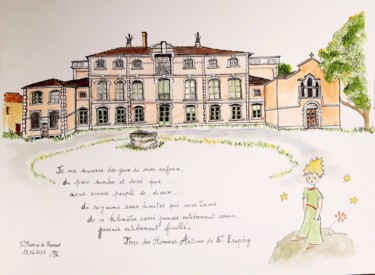 Je me souviens des jeux de mon enfance,
du parc sombre et doré que
nous avions peuplé de dieux,
du royaume sans limites que nous tirions
de ce kilomètre carré jamais entièrement connu,
jamais entièrement fouillé...
Terre des Hommes Antoine de St Exupéry
St Maurice de Rémens